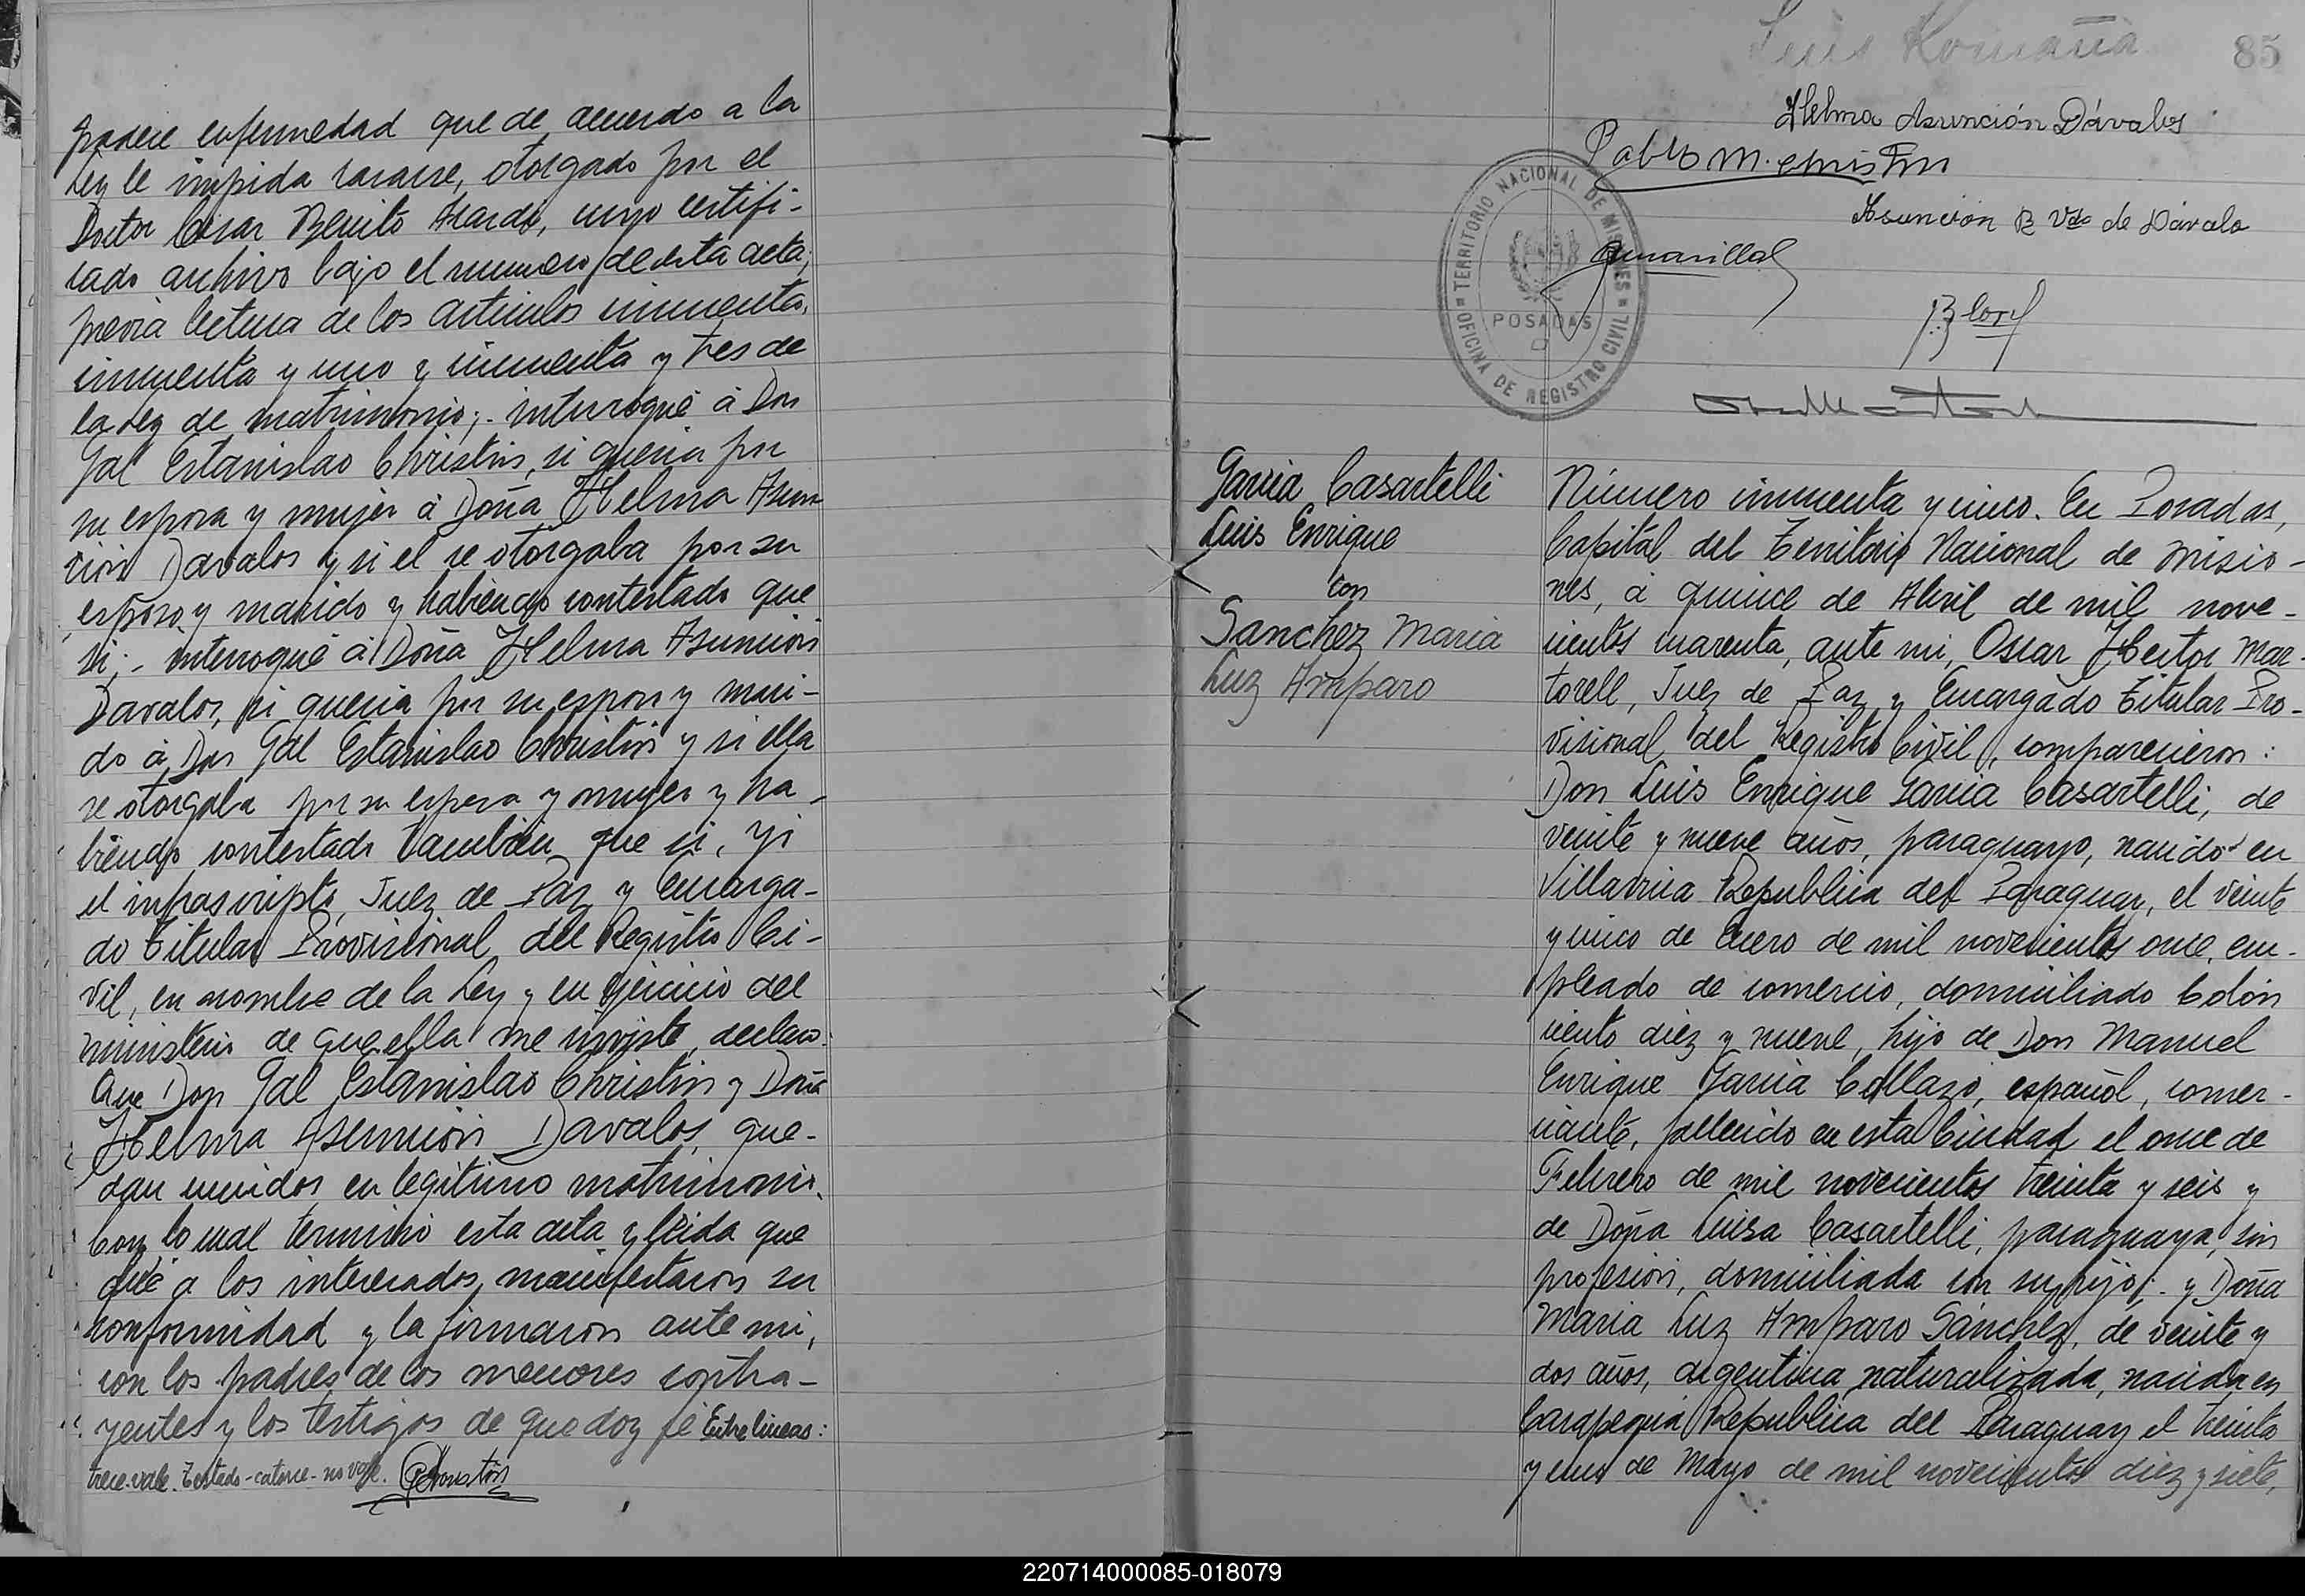 padece enfermedad que de acuerdo a la
Ley le impida casarse, otorgado por el
Doctor Cesar Benito, cuyo certifi-
cado archivo bajo el numero de esta acta,
previa lectura de los articulos cincuenta,
cincuenta y uno y cincuenta y tres de
la Ley de matrimonio; - interrogué á Don
Gal Estanislao Christin, si queria por
su esposa y mujer á Doña Helma Asun
cion Davalos y si el se otorgaba por su
esposo y marido y habiendo contestado que
si; - interrogué á Doña Helma Asunción
Davalos, si queria por su esposo y mari-
do á Don Gal Estanislao Christin y si ella
se otorgaba por su esposa y mujer y ha-
biendo contestado tambien que si, Yo
el infrascripto, Juez de Paz y Encarga-
do Titular Provisional del Registro Ci-
vil, en nombre de la Ley y en ejercicio del
ministerio de que ella me inviste, declaro:
Que Don Gal Estanislao Christin y Doña
Helma Asunción Davalos, que-
dan unidos en legitimo matrimonio.
Con lo cual terminó esta acta y leida que
fué a los interesados, manifestaron su
conformidad y la firmaron ante mi,
con los padres de los menores contra-
yentes y los testigos de que doy fé Entre lineas:
trece-vale. Testado-catorce-no vale. GChristin
Luis Romaña
85
Helma Asunción Dávalos
Pablo M. Christin
Asunción R Vda de Dávalo
Amarilla
TERRITORIO NACIONAL DE MISIONES
POSADAS
OFICINA DE REGISTRO CIVIL
Garcia Casartelli
Luis Enrique
con
Sanchez Maria
Luz Amparo
Número cincuenta y cinco. En Posadas,
Capital del Territorio Nacional de Misio-
nes, á quince de Abril de mil nove-
cientos cuarenta, ante mi, Oscar Hector Mar-
torell, Juez de Paz y Encargado Titular Pro-
visional del Registro Civil, comparecieron:
Don Luis Enrique Garcia Casartelli, de
veinte y nueve años, paraguayo, nacido en
Villarrica Republica del Paraguay, el veinte
y cinco de Enero de mil novecientos once, em-
pleado de comercio, domiciliado Colón
ciento diez y nueve, hijo de Don Manuel
Enrique Garcia Collazo, español, comer-
ciante, fallecido en esta Ciudad el once de
Febrero de mil novecientos treinta y seis y
de Doña Luisa Casartelli, paraguaya, sin
profesión, domiciliada con su hijo; - y Doña
Maria Luz Amparo Sánchez, de veinte y
dos años, argentina naturalizada, nacida en
Carapeguá Republica del Paraguay el treinta
y uno de Mayo de mil novecientos diez y siete,
220714000085-018079